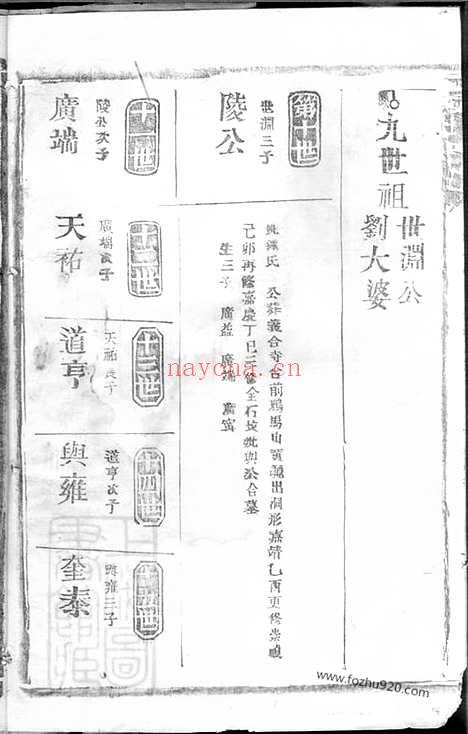 九世祖
世淵公
劉大婆
第十世
世淵三子
陵公
氏 公葬義合寺右前 馬山 出洞形嘉靖乙酉更修崇禎
己卯再修嘉慶丁巳三修全石 與公合墓
生三子 廣益 廣端 廣寅
十一世
陵公次子
廣端
十二世
廣端次子
天祐
十三世
天祐長子
道亨
十四世
道亨次子
興雍
十五世
興雍三子
奎泰
nayona.cn
www.fozhu920.com